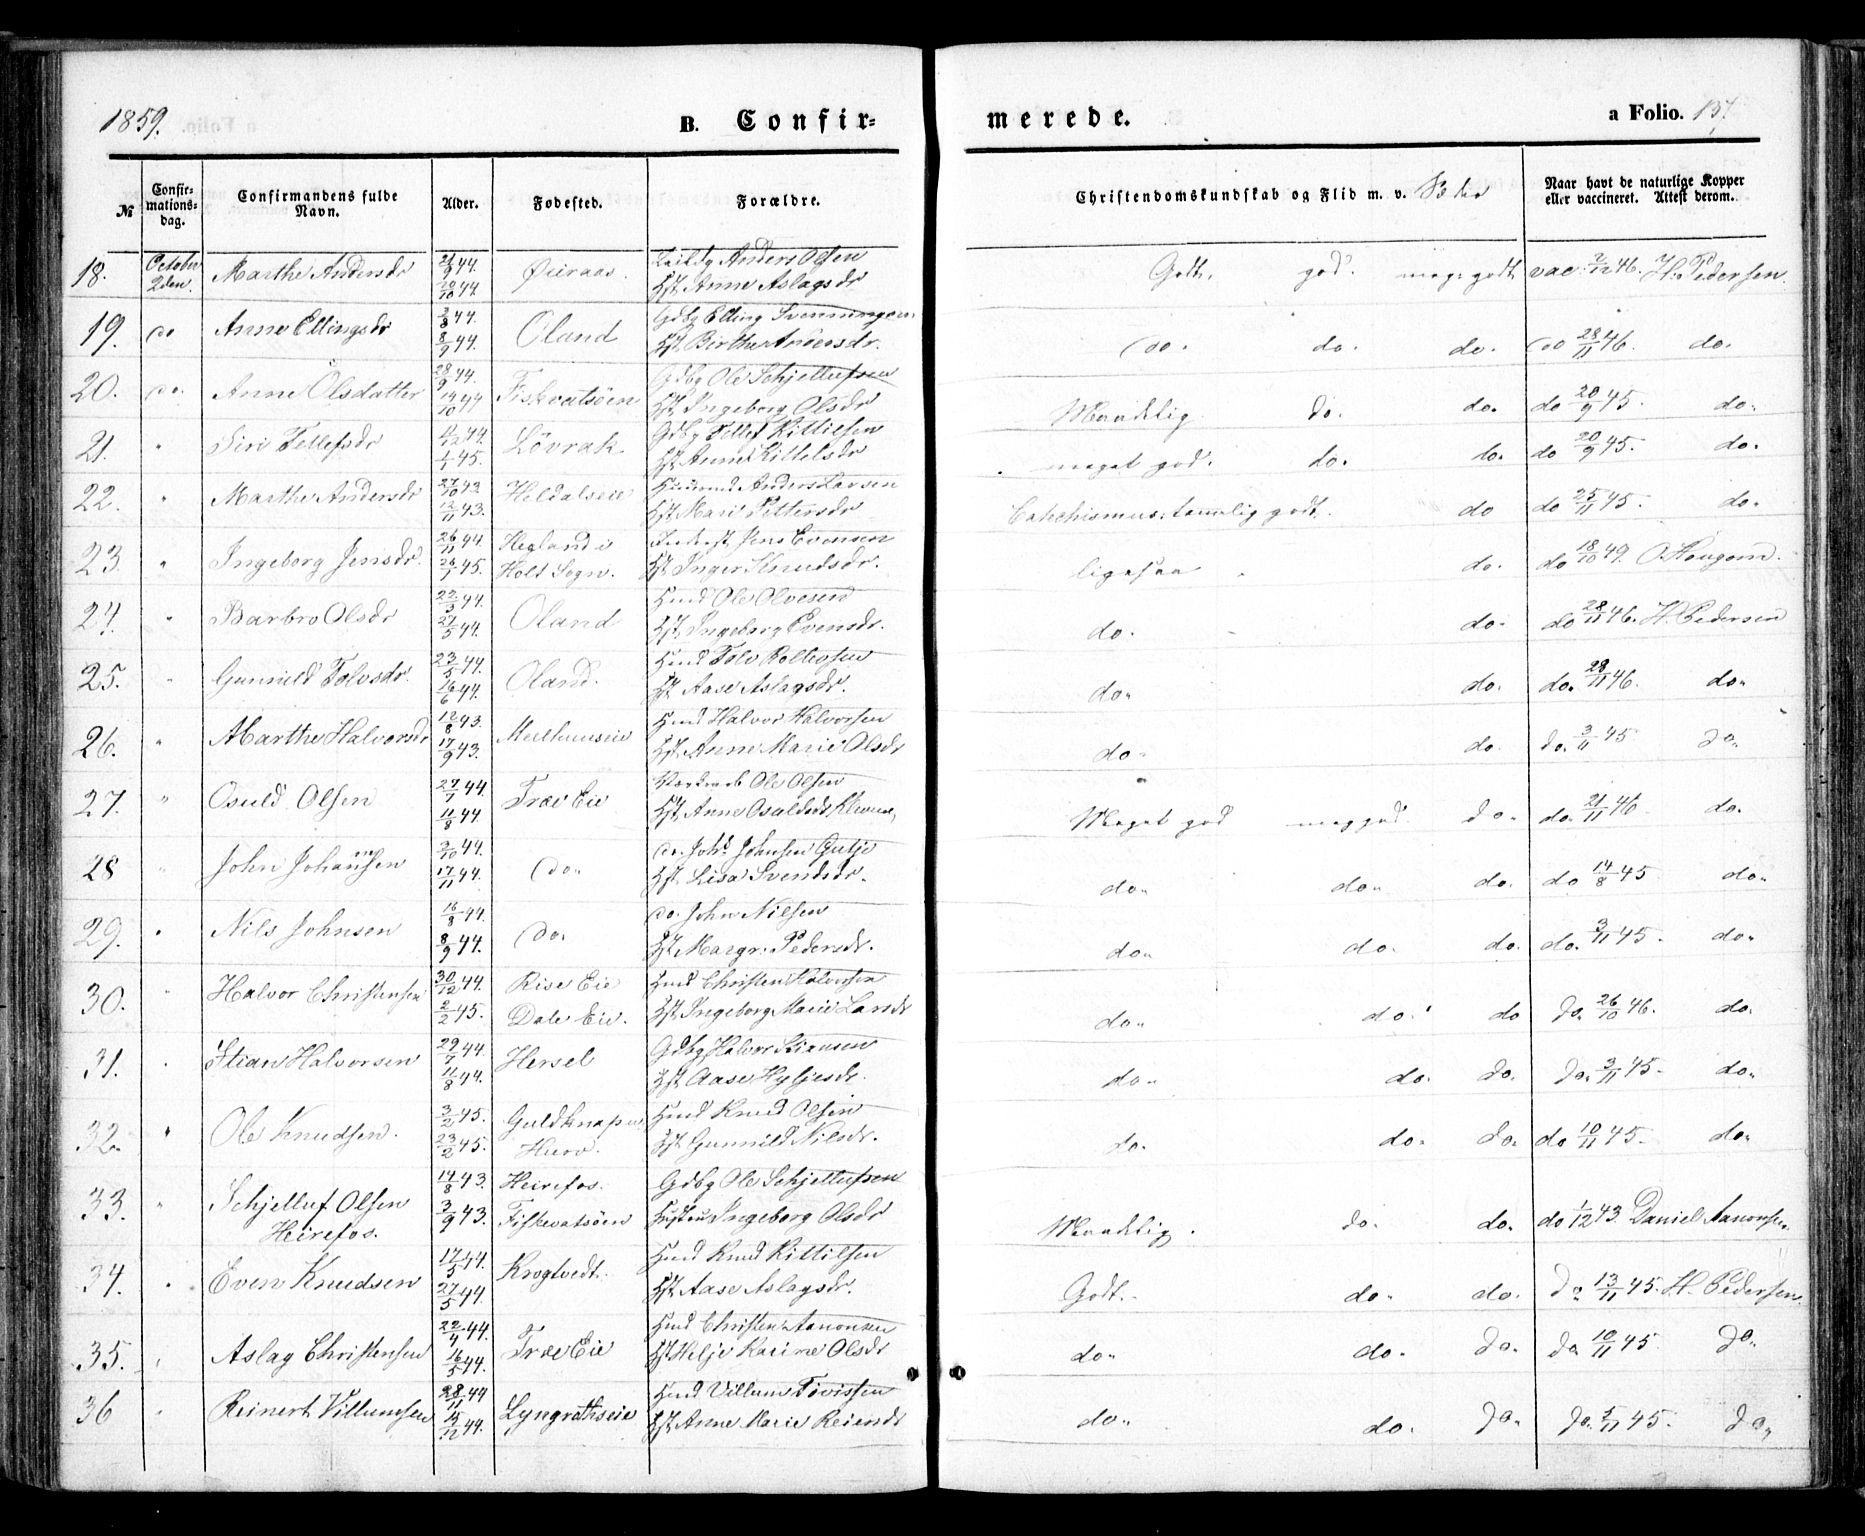 1859. B. Confir= merede. a Folio. 137
№ Confir=mations=dag. Confirmandens fulde Navn. Alder. Fødested. Forældre. Christendomskundskab og Flid m. v. Naar havt de naturlige Kopper eller vaccineret. Attest derom.
18. October 2den. Marthe Andersdr 21/9 44. Øieraas. Anders Olsen Godt. god. meg: godt vac. 2/12 46. H. Pedersen.
20/10 44. Hst. Anne Aslagsdr
19. do Anne Ellingsdr 3/8 44. Oland Gdbg Elling Svenningsen do. do. do. do 28/11 46. do.
8/9 44. Hst. Birthe Andersdr.
20. do. Anne Olsdatter 28/9 44. Fiskvatsöen Gdbg Ole Schjellufsen Maadelig do. do. do 20/9 45. do.
19/10 44 Hst. Ingeborg Olsdr
21. " Siri Tellefsdr 11/12 44. Lövrak Gdbg Tellef Kittilsen meget god. do. do. do 20/9 45. do.
1/1 45. Hst. Anne Kittelsdr
22. " Marthe Andersdr 27/10 43 Heldalseie Huusmd Anders Larsen Catechismus: temelig godt. do do 25/11 45. do.
12/11 43. Hst. Mari Pettersdr
23. " Ingeborg Jensdr. 26/11 44. Hegland i Jens Evensen ligesaa do. do 18/10 49. O Hougom.
26/1 45. Holt Sogn. Hst. Inger Knudsdr.
24. " Barbro Olsdr 22/3 44. Oland Huud Ole Olvesen do. do. do 28/11 46. H. Pedersen
27/5 44. Hst. Ingeborg Evensdr.
25. " Gunnild Tolvsdr. 23/5 44. Oland. Huud Tolv Rollevsen do. do. do. 28/11 46. do.
16/6 44. Hst. Aase Aslagsdr.
26. " Marthe Halvorsdr 12/8 43. Huud Halvor Halvorsen do. do. do. 3/11 45 do.
17/9 43. Hst. Anne Marie Olsdr
27. " Osuld Olsen 27/7 44. Træe Eie Ole Olsen Meget god meg god. do. do. 21/11 46 do.
11/8 44. Hst. Anne Osuldsdr
28 " John Johannsen 3/10 44. do. do. Johs Johnsen Gutje do. do. do. do 14/8 45 do.
17/11 44. Hst. Lisa Svendsdr.
29. " Nils Johnsen 16/8 44. do. do. John Nilsen do. do. do. do. 3/11 45. do.
8/9 44. Hst. Margr. Pedersdr.
30. " Halvor Christensen 30/12 44. Rise Eie Huud Christen Halvorsen do. do. do do. 26/10 46. do.
2/2 45. Dale Eie. Hst. Ingeborg Marie Larsdr
31. " Stian Halvorsen 29/7 44. Hersel Gdbg Halvor Stiansen do. do. do. do. 3/11 45. do.
11/8 44. Hst. Aase Hyljesdr.
32. " Ole Knudsen. 3/2 45. Guldknapen Huud Knud Olsen do. do. do. do 10/11 45. do.
23/2 45. Hst. Gunnild Nilsdr.
33. " Schjelluf Olsen 14/8 43. Heirefos. Gdbg Ole Schjellufsen Maadelig. do. do. do 1/12 43. Daniel Aanonsen
Heirefos. 3/9 43. Fiskevatsöen Hustru Ingeborg Olsdr
34. " Even Knudsen 17/5 44. Krogtvedt. Huud Knud Kittilsen Godt. do. do. do 13/11 45. H. Pedersen.
27/5 44. Hst. Aase Aslagsdr.
35. " Aslag Christensen 22/4 44. Træe Eie Huud Christen Aanonsen do. do. do. do. 10/11 45. do.
16/5 44. Hst. Helje Karine Olsdr
36 " Reinert Villumsen 28/11 44 Lyngrothseie Huud Villum Tovissen do. do. do. do. 3/11 45. do.
15/12 44. Hst. Anne Marie Reiersdr